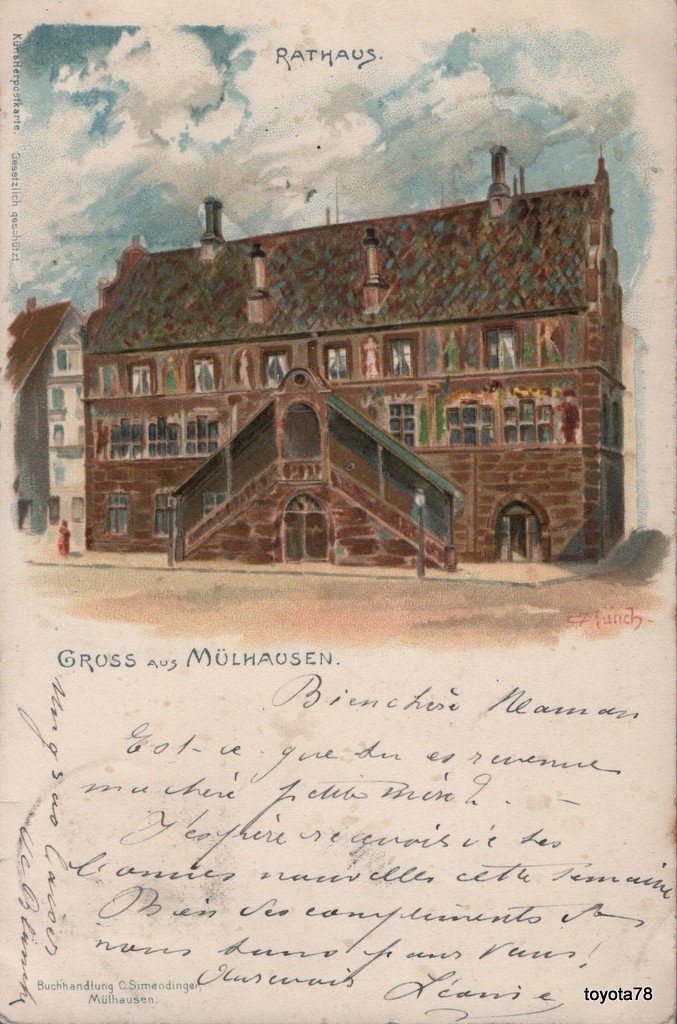 RATHAUS.
Künstlerpostkarte. Gesetzlich geschützt.
C Münch.
GRUSS AUS MÜLHAUSEN.
Bien chère Maman
Est-ce que tu es revenue
ma chère petite mère?. -
J'espère recevoir de tes
bonnes nouvelles cette semaine
Bien des compliments de
nous tous pour Vous!
Aurevoir Léonie
baiser
de Blanch
Buchhandlung C. Simendinger,
Mülhausen.
toyota78